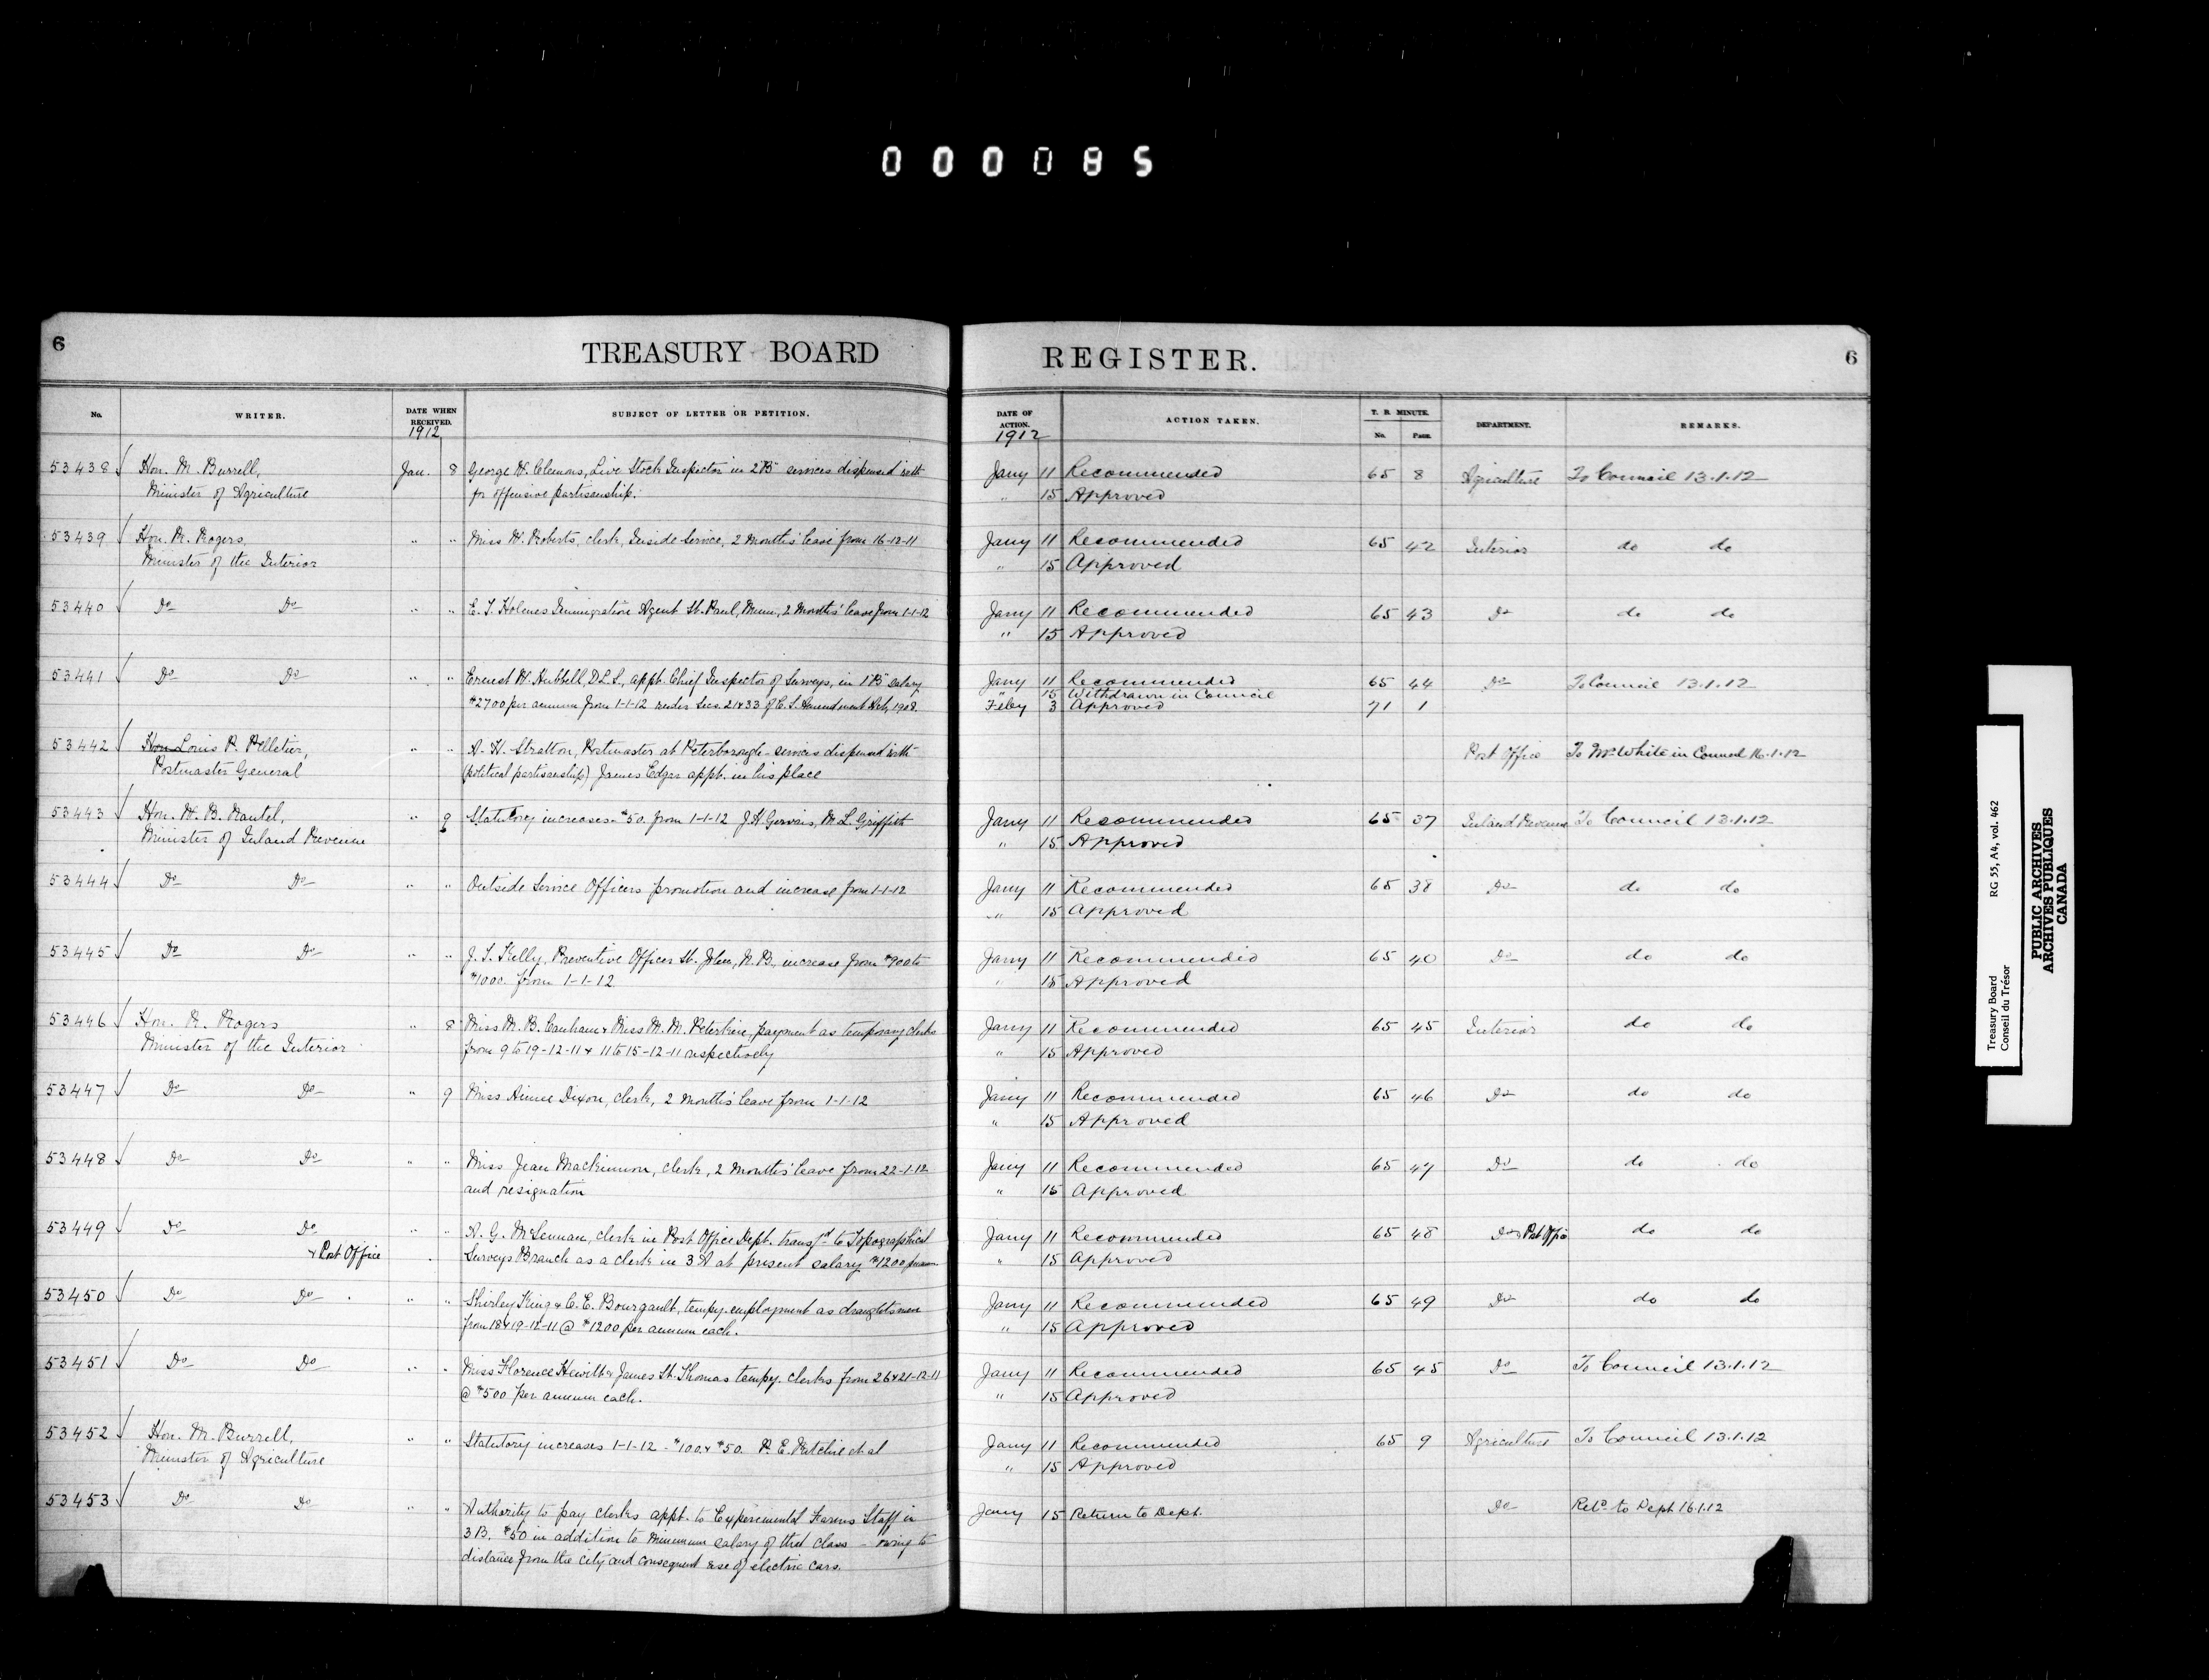 000085
6
TREASURY BOARD
REGISTER.
6
No.
WRITER.
DATE WHEN RECEIVED.
SUBJECT OF LETTER OR PETITION.
DATE OF ACTION.
ACTION TAKEN.
T. B. MINUTE.
No. Page.
DEPARTMENT.
REMARKS.
1912
1912
53438 Hon. M. Burrell, Jan. 8 George W. Clemons, Live Stock Inspector in 2 "B" services dispensed with Jany 11 Recommended 65 8 Agriculture To Council 13.1.12
Minister of Agriculture for offensive partisanship. " 15 Approved
53439 Hon. R. Rogers, " " Miss W. Roberts, clerk, Inside Service, 2 months' leave from 16-12-11 Jany 11 Recommended 65 42 Interior do do
Minister of the Interior " 15 Approved
53440 Do Do " " Holmes Immigration Agent St. Paul, Minn., 2 Months' leave from 1-1-12 Jany 11 Recommended 65 43 Do do do
" 15 Approved
53441 Do Do " " Ernest W. Hubbell, D.L.S., appt. Chief Inspector of Surveys, in 1 "B" salary Jany 11 Recommended 65 44 Do To Council 13.1.12
" 15 Withdrawn in Council
$2700 per annum from 1-1-12 under Secs. 21 & 33 of C. S. Amendment Act, 1908. Feby 3 Approved 71 1
53442 Hon Louis P. Pelletier, " " Stratton, Postmaster at Peterborough - services dispensed with Post Office To Mr. White in Council 16.1.12
Postmaster General (political partisanship) James Edgar appt. in his place
53443 Hon. W. B. Nantel, " 9 Statutory increases - $50. from 1-1-12 J. H. Gervais, M. L. Griffith Jany 11 Recommended 65 37 Inland Revenue To Council 13.1.12
Minister of Inland Revenue " 15 Approved
53444 Do Do " " Outside Service Officers promotion and increase from 1-1-12 Jany 11 Recommended 65 38 Do do do
" 15 Approved
53445 Do Do " " Kelly, Preventive Officer St. John, N. B., increase from $900 to Jany 11 Recommended 65 40 Do do do
$1000. from 1-1-12 " 15 Approved
53446 Hon. R. Rogers " 8 Miss M. B. Canham & Miss M. M. Peterkin, payment as temporary clerks Jany 11 Recommended 65 45 Interior do do
Minister of the Interior from 9 to 19-12-11 & 11 to 15-12-11 respectively " 15 Approved
53447 Do Do " 9 Miss Dixon, clerk, 2 months' leave from 1-1-12 Jany 11 Recommended 65 46 Do do do
" 15 Approved
53448 Do Do " " Miss Jean Mackinnon, clerk, 2 months' leave from 22-1-12 Jany 11 Recommended 65 47 Do do do
and resignation " 15 Approved
53449 Do Do " " A. G. McLennan, clerk in Post Office Dept. transfd to Topographical Jany 11 Recommended 65 48 Do & Post Office do do
& Post Office Surveys Branch as a clerk in 3 A at present salary $1200 per ann. " 15 Approved
53450 Do Do " " Shirley King & C. E. Bourgault, tempy. employment as draughtsmen Jany 11 Recommended 65 49 Do do do
from 18 & 19-12-11 @ $1200 per annum each. " 15 Approved
53451 Do Do " " Miss Florence Hewitt & James St. Thomas tempy. clerks from 26 & 21-12-11 Jany 11 Recommended 65 45 Do To Council 13.1.12
@ $500 per annum each. " 15 Approved
53452 Hon. M. Burrell, " " Statutory increases 1-1-12 - $100. & $50. P. E. Ritchie et al Jany 11 Recommended 65 9 Agriculture To Council 13.1.12
Minister of Agriculture " 15 Approved
53453 Do Do " " Authority to pay clerks appt. to Experimental Farms Staff in Jany 15 Return to Dept. Do Retd to Dept 16.1.12
3 B. $50 in addition to minimum salary of that class - owing to
distance from the city and consequent use of electric cars.
Treasury Board RG 55, A4, vol. 462
Conseil du Trésor
PUBLIC ARCHIVES
ARCHIVES PUBLIQUES
CANADA